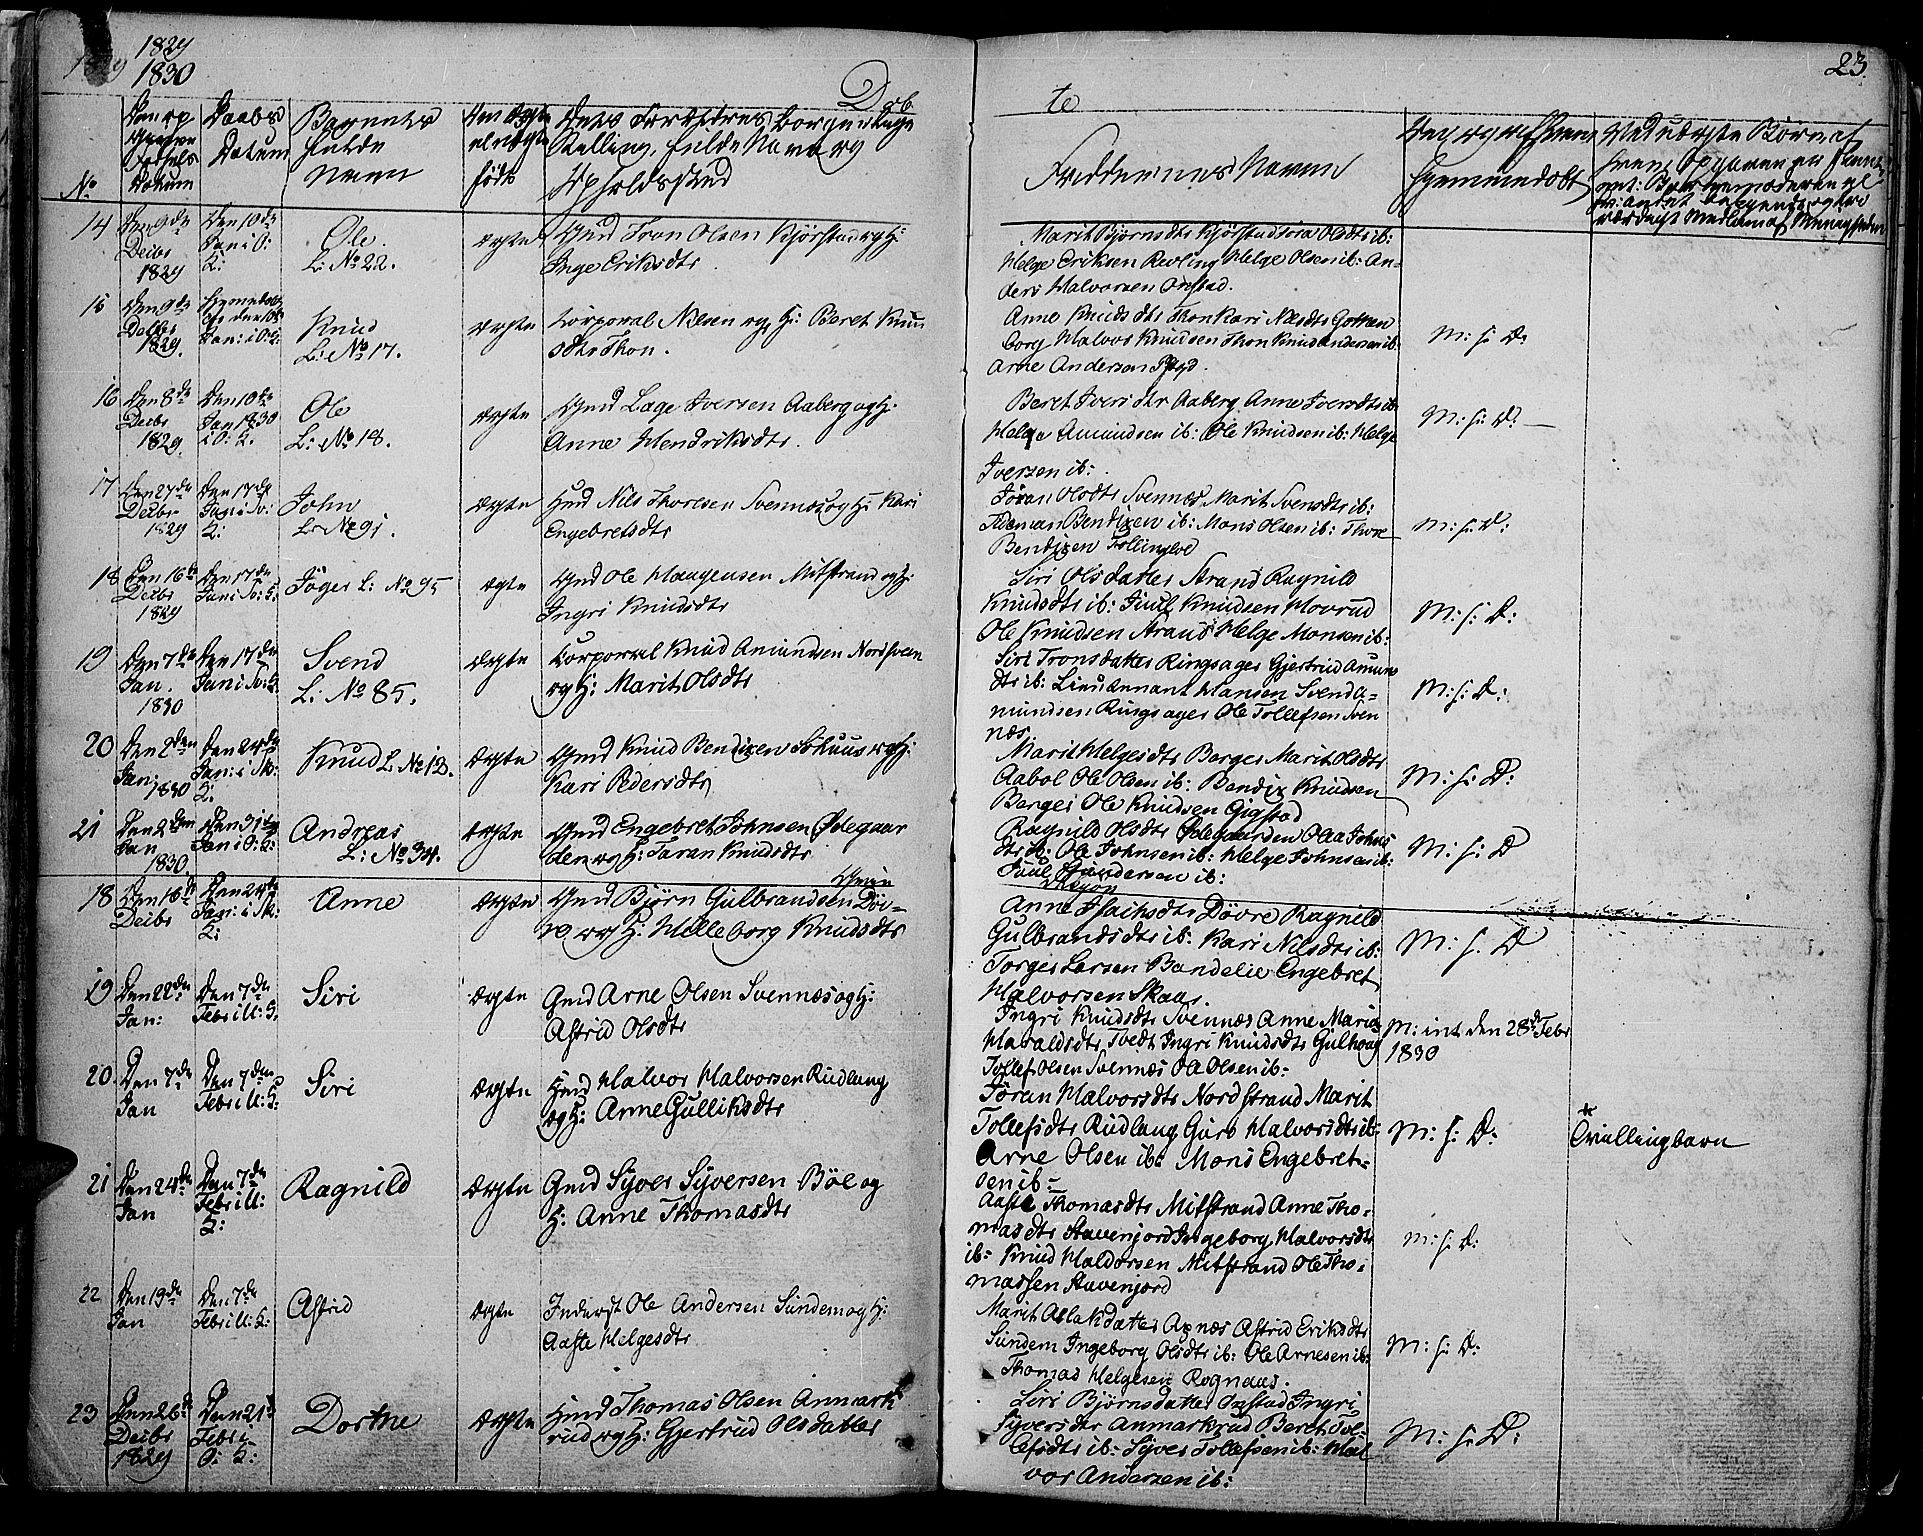 1829
1830
23.
Døb
te
No
Datum
Daabs
Datum
Barnets
fulde
Navn
føds
Stilling, fulde Navn og
Opholdssted
Faddernes Navne
Hjemmedøbt
14
Den 9de
Decbr
1829
Den 10de
Jan i O:
K:
Ole.
L: No 22.
ægte
Gmd Tron Olsen Kjørstad og H:
Inge Eriksdtr
Marit Bjørnsdtr Kjørstad Tora Olsdtr ib:
Helge Eriksen Revling Helge Olsen ib: An=
ders Halvorsen Onstad.
15
Den 9de
Decbr
1829.
Jan: i O: K:
Knud
L: No 17.
ægte
Corporal Nilsen og H: Beret Knu
dsdtr Thon.
Anne Knudsdtr Thon Kari Nilsdtr Gotten
borg Halvor Knudsen Thon Knud Andersen ib:
Arne Andersen
M: f: D:
16
Den 8de
Decbr
1829.
Den 10de
Jan 1830
i O: K.
Ole
L: No 18.
ægte
Gmd Lage Iversen Aaberg og H:
Anne Hendriksdtr.
Beret Iversdtr Aaberg Anne Iversdtr ib:
Helge Amundsen ib: Ole Knudsen ib: Helge
Iversen ib:
M: f: D:
17
Den 27de
Decbr
1829
Den 17de
Jan i Sv:
K:
John
L: No 91.
ægte
Hmd Nils Thoresen Svennæs og H: Kari
Engebretsdtr
Jøran Olsdtr Svennæs Marit Svensdtr ib:
Tideman Bendixen ib: Mons Olsen ib: Thore
Bendixen Follingloe
M: f: D:
18
Den 16de
Decbr
1829
Den 17de
Jan i Sv: K.
Jøger L: No 95
ægte
Gmd Ole Haagensen Midstrand og H:
Ingri Knudsdtr
Siri Olsdatter Strand Ragnild
Knudsdtr ib: Juul Knudsen Hovrud
Ole Knudsen Strand Helge Monsen ib:
M: f: D:
19
Den 7de
Jan.
1830
Den 17de
Jan i Sv: K.
Svend
L: No 85.
ægte
Corporal Knud Amundsen Nordsveen
og H: Marit Olsdtr
Siri Tronsdatter Ringsager Gjertrud Amund
dtr ib: Lieutennant Hansen Svend A=
mundsen Ringsager Ole Tollefsen Sven
næs.
M: f: D:
20
Den 2den
Jan:
1830
Den 24de
Jan: i Sk:
K:
Knud L: No 13.
ægte
Gmd Knud Bendixen Schuus og H:
Kari Pedersdtr
Marit Helgesdtr Berges Marit Olsdtr
Aabol Ole Olsen ib: Bendix Knudsen
Berges Ole Knudsen Gigstad
M: f: D:
21
Den 2den
Jan
1830.
Den 31te
Jan i O: K:
Andreas
L: No 34.
ægte
Gmd Engebret Johnsen Ødegaar
den og H: Taran Knudsdtr
Ragnild Olsdtr Ødegaarden Olea Johns
dtr ib: Ole Johnsen ib: Helge Johnsen ib:
Juul Gundersen ib:
M: f: D
18
Den 16de
Decbr
Den 24de
Jan: i Sk:
K:
Anne
ægte
Gmd Bjørn Gulbrandsen Døv=
re og H: Helleborg Knudsdtr
Anne Isachsdtr Døvre Ragnild
Gulbrandsdtr ib: Kari Nilsdtr ib:
Torger Larsen Bandelie Engebret
Halvorsen Skaar.
M: f: D
19
Den 22de
Jan:
Den 7de
Febr i U: K.
Siri
ægte
Gmd Arne Olsen Svennæs og H:
Astrid Olsdtr
Ingri Knudsdtr Svennæs Anne Maria
Haraldsdtr Tvedt Ingri Knudsdtr Gulhaug
Tollef Olsen Svennæs Ole Olsen ib:
M: int den 28de Febr
1830
20.
Den 7de
Jan
Den 7de
Febr i U: K:
Siri
ægte
Hmd Halvor Halvorsen Rudlang
og H: Anne Gulliksdtr
Jøran Halvorsdtr Nordstrand Marit
Tollefsdtr Rudlang Guro Halvorsdtr ib:
Arne Olsen ib: Mons Engebret=
sen ib:
M: f: D:
*
Tvillingbarn
21
Den 24de
Jan
Den 7de
Febr i U:
K:
Ragnild
ægte
Gmd Syver Syversen Bøe og
H: Anne Thomasdtr
Aaste Thomasdtr Midstrand Anne Tho=
masdtr Stavenjord Ingeborg Halvorsdtr
ib: Knud Haldorsen Midstrand Ole Tho=
massen Stavenjord
M: f: D:
22
Den 19de
Jan
Den 7de
Febr i U: K:
Astrid
ægte
Inderst Ole Andersen Sundem og H:
Aaste Helgesdtr
Marit Aslaksdatter Apnæs Astrid Eriksdtr
Sundem Ingeborg Olsdtr ib: Ole Arnesen ib:
Thomas Helgesen Rognaas.
M: f: D:
23
Den 26de
Decbr
1829
Den 21de
Febr i
O: K:
Dorthe
ægte
Hmd Thomas Olsen Anmark
rud og H: Gjertrud Olsdatter
Siri Bjørnsdatter Onstad Ingri
Syversdtr Anmarkrud Beret Tol=
lefsdtr ib: Syver Tollefsen ib: Hal
vor Andersen ib:
M: f: D: